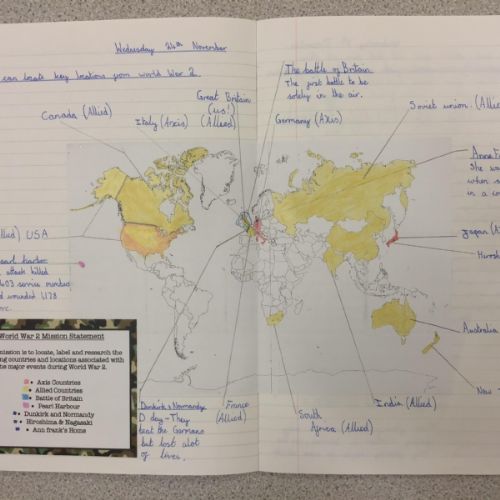 Wednesday 24th November
can locate key locations from world War 2.
Great Britain
(us!)
(Allied)
Canada (Allied)
Italy (Axis)
The battle of Britain
The first battle to be
solely in the air.
Germany (Axis)
Soviet union. (Allied
Anne F
She wa
when s
in a co
USA
Pearl harbor
attack killed
service members
wounded 1,178
Japan (A
Hirosh
Australia
New
India (Allied)
South
Africa (Allied)
France
(Allied)
Dunkirk & Normandy
D day - They
beat the Germans
but lost alot
of lives.
World War 2 Mission Statement
mission is to locate, label and research the
ing countries and locations associated with
major events during World War 2.
Axis Countries
Allied Countries
Battle of Britain
Pearl Harbour
Dunkirk and Normandy
Hiroshima & Nagasaki
Ann frank's Home